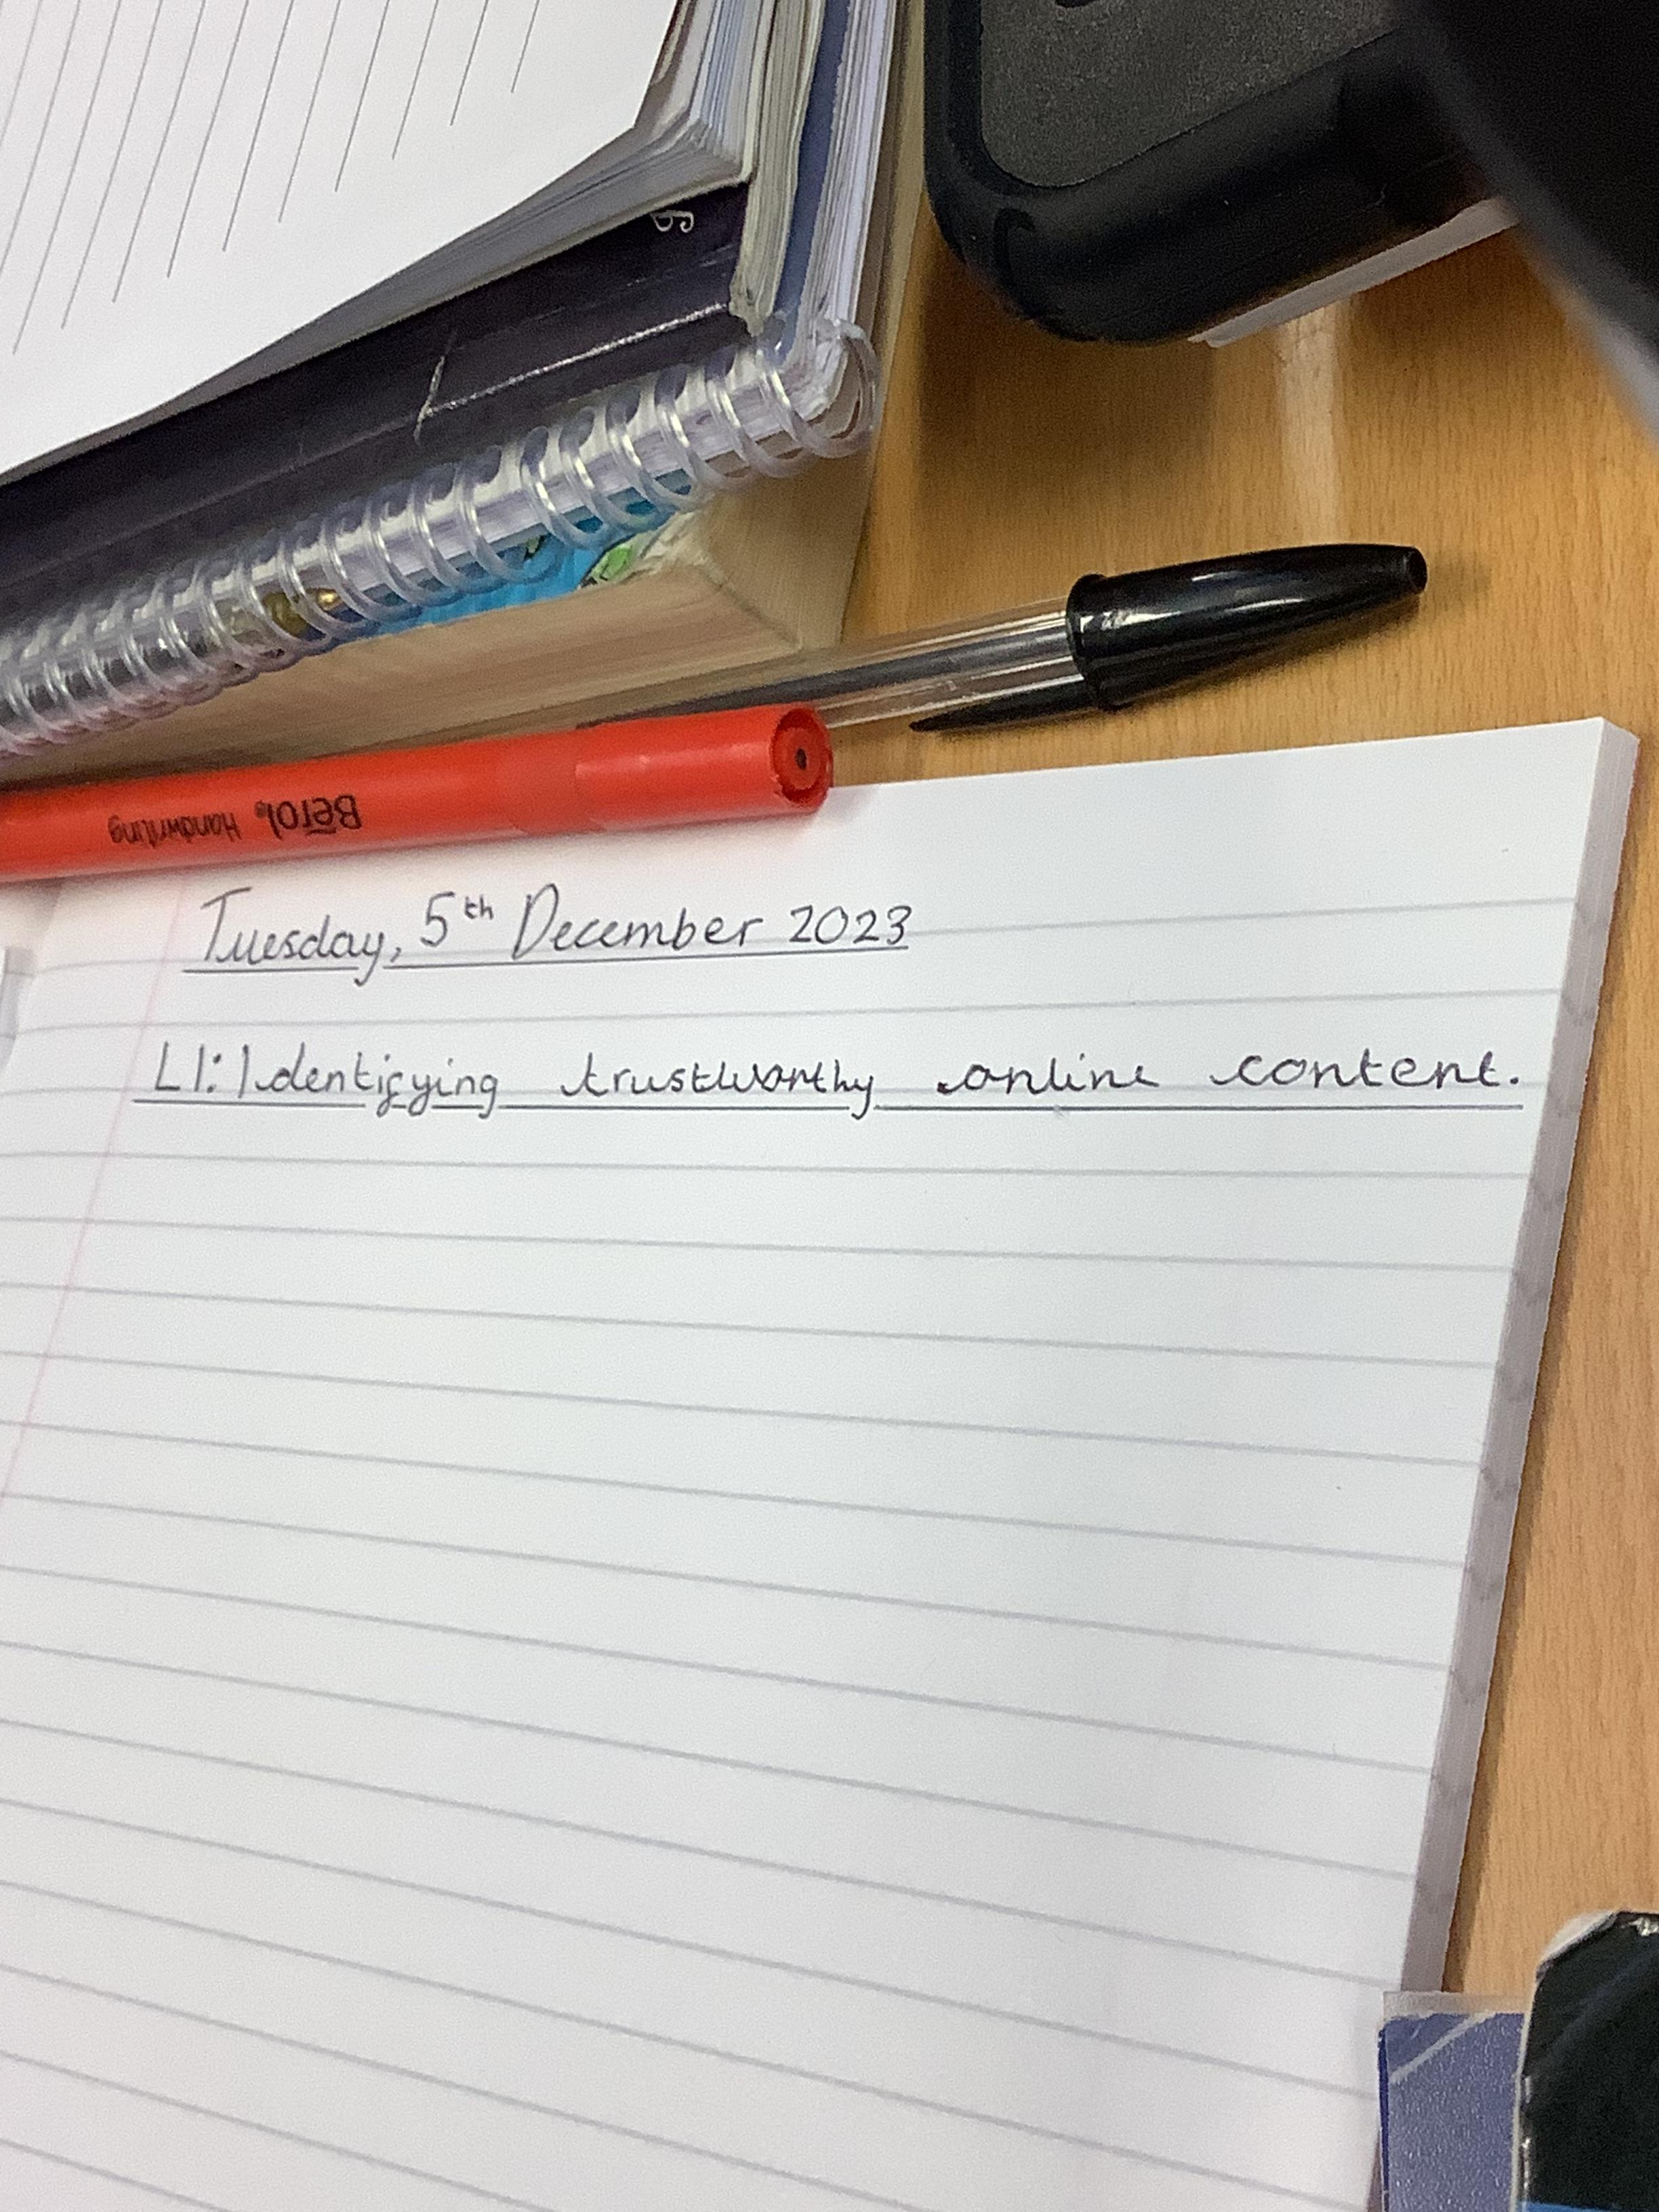 Berol Handwriting
Tuesday, 5th December 2023
LI: Identifying trustworthy online content.